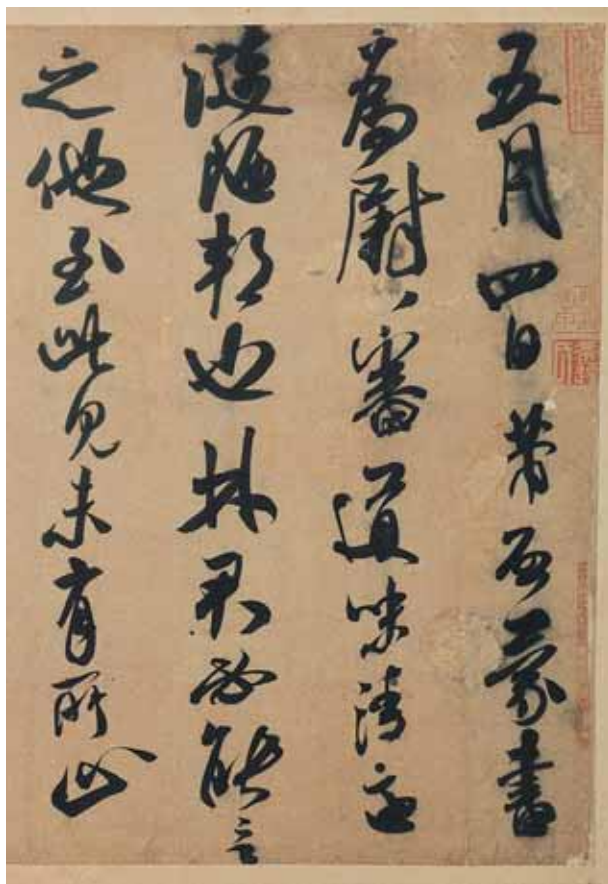 五月四日芾啓蒙書
為尉〻審道味清適
漣陋邦也林君必能言
之他至此見未有所止